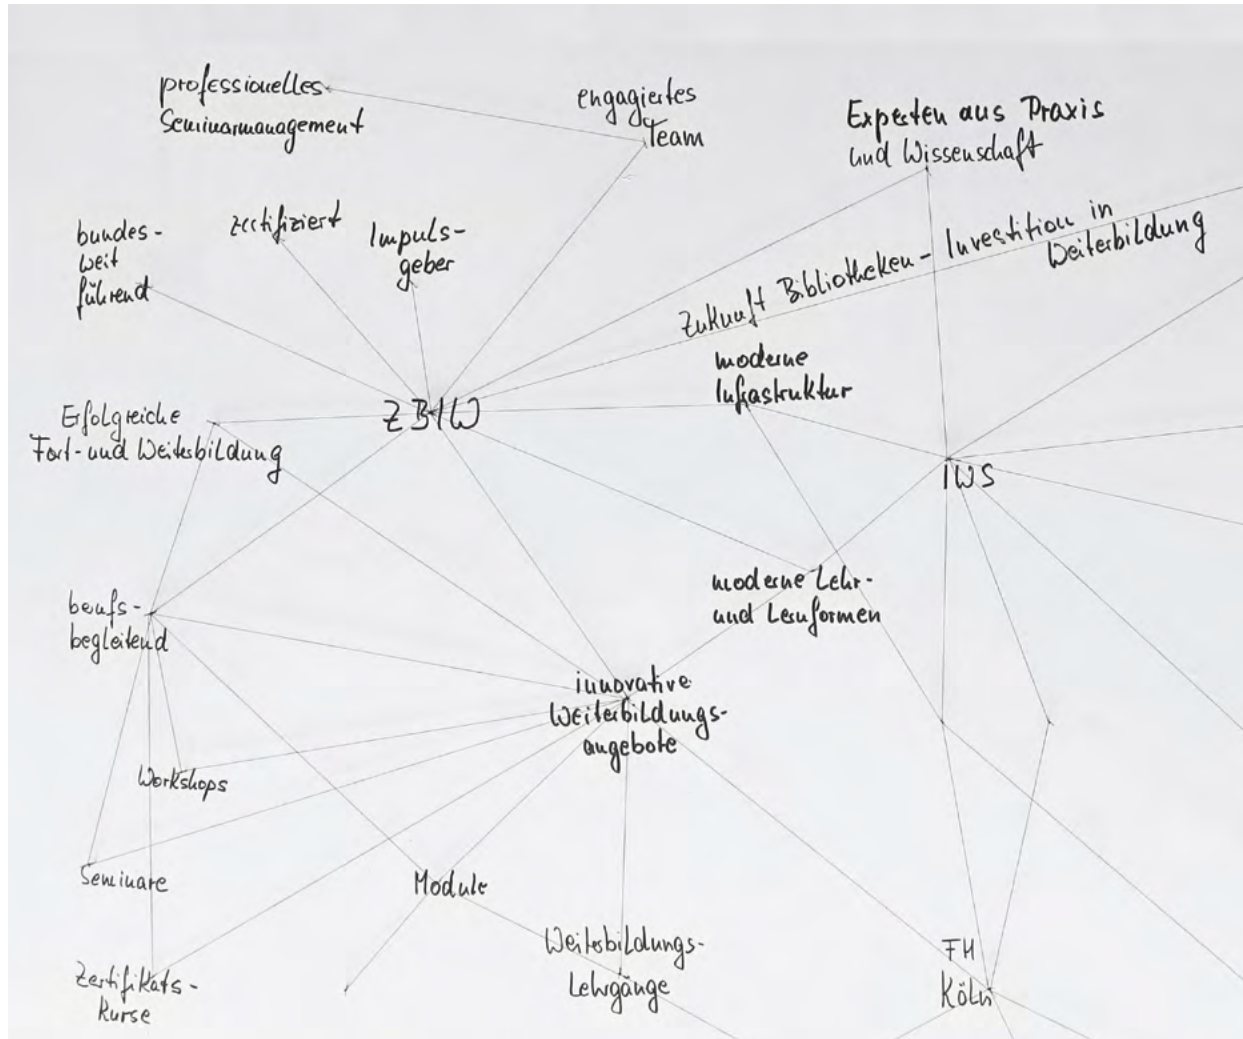 professionelles
Seminarmanagement
engagiertes
Team
Experten aus Praxis
und Wissenschaft
bundes-
weit
führend
zertifiziert
Impuls-
geber
Zukunft Bibliotheken - Investition in
Weiterbildung
moderne
Infrastruktur
Erfolgreiche
Fort- und Weiterbildung
ZBIW
IWS
berufs-
begleitend
moderne Lehr-
und Lernformen
innovative
Weiterbildungs-
angebote
Workshops
Seminare
Module
Weiterbildungs-
Lehrgänge
FH
Köln
Zertifikats-
kurse